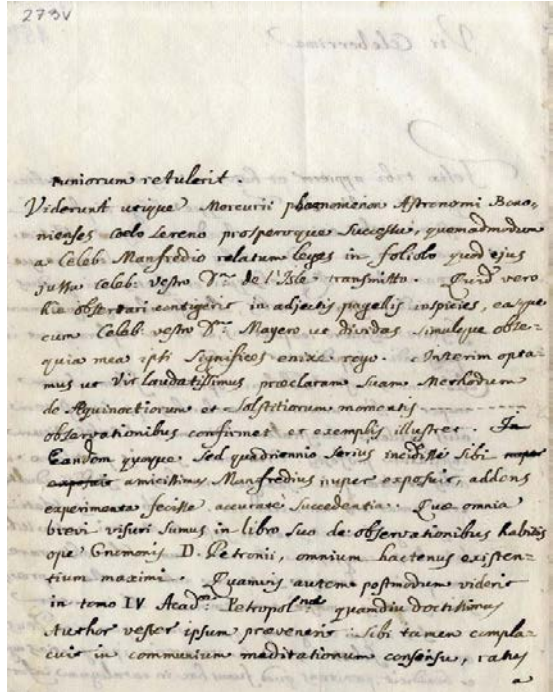 273v
runiorum retulerit.
Viderunt utique Mercurii phaenomenon Astronomi Bono-
nienses coelo sereno prosperoque successu, quemadmodum
a Celeb: Manfredio relatum leges in foliolo quod ejus
jussu Celeb: vestro D.no de l'Isle transmitto. Quid vero
hic observari contigerit in adjectis pagellis inspicies, easque
cum Celeb: vestro D.no Mayero ut dividas simulque obse-
quia mea ipsi significes enixe rogo. Interim opta-
mus ut Vir laudatissimus praeclaram suam Methodum
de Aequinoctiorum et solstitiorum momentis
observationibus confirmet et exemplis illustret. In
Eandem quoque sed quadriennio serius incidisse sibi nuper
exposuit amicissimus Manfredius nuper exposuit, addens
experimenta fecisse accurate succedentia. Quae omnia
brevi visuri sumus in libro suo de observationibus habitis
ope Gnomonis D. Petronii, omnium hactenus existen-
tium maximi. Quamvis autem postmodum viderit
in tomo IV Acad: Petropol.nae quamdiu doctissimus
Author vester ipsum prevenerit sibi tamen compla-
cuit in communium meditationum consensu, ratus
a